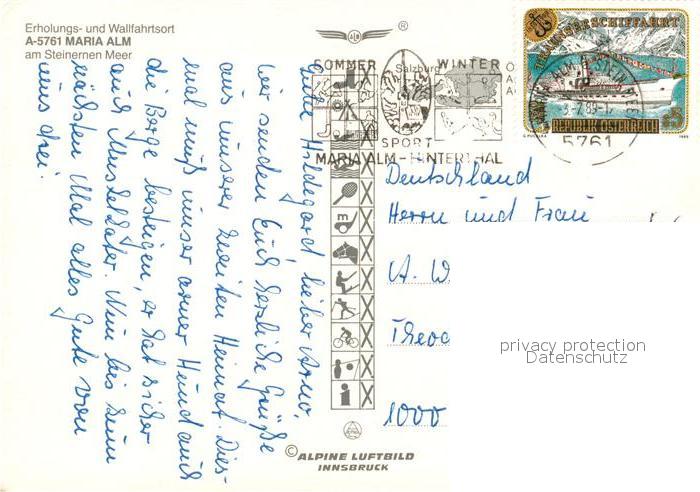 Erholungs- und Wallfahrtsort
A-5761 MARIA ALM
am Steinernen Meer
®
ALM
SOMMER
Salzburg
WINTER
SPORT
MARIA ALM - HINTERTHAL
TRAUNSEESCHIFFAHRT
REPUBLIK ÖSTERREICH
S5
5761
Liebe Hildegard, lieber Arno,
wir senden Euch herzliche Grüße
aus unserer zweiten Heimat. Dies-
mal muß unser armer Hund auch
die Berge besteigen, er hat sicher
auch Muskelkater. Nun bis zum
nächsten Mal alles Gute von
uns drei.
Deutschland
Herrn und Frau
A. W
Theoc
1000
m
i
privacy protection
Datenschutz
© ALPINE LUFTBILD
INNSBRUCK